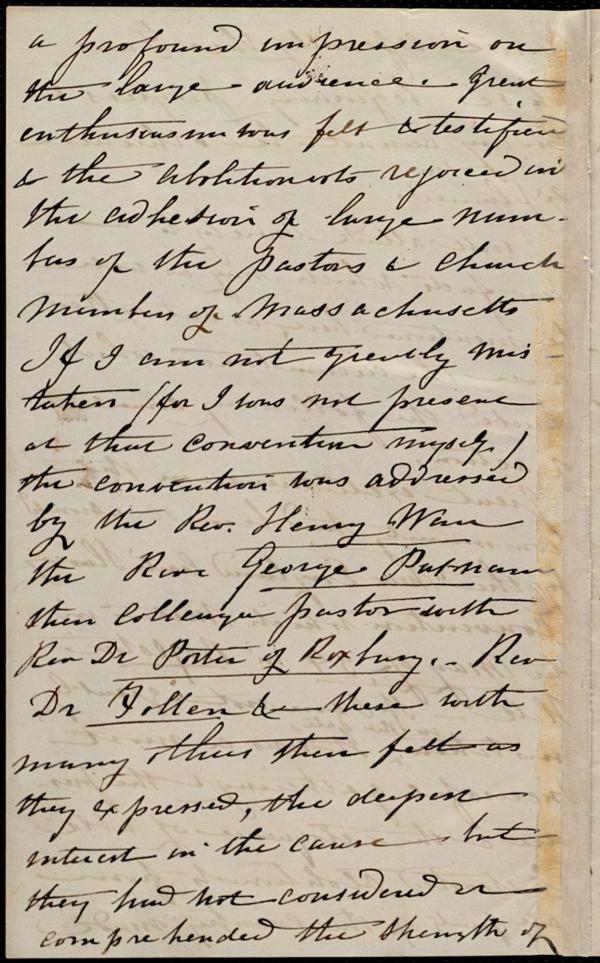 a profound impression on
the large audience. Great
enthusiasm was felt & testified
& the abolitionists rejoiced in
the adhesion of large num-
bers of the pastors & church
members of Massachusetts
If I am not greatly mis-
taken (for I was not present
at that convention myself,)
the convention was addressed
by the Rev. Henry Ware
the Rev. George Putnam
then colleague pastor with
Rev Dr Porter of Roxbury. - Rev
Dr Follen & these with
many others then felt as
they expressed, the deepest
interest in the cause but
they had not considered or
comprehended the strength of